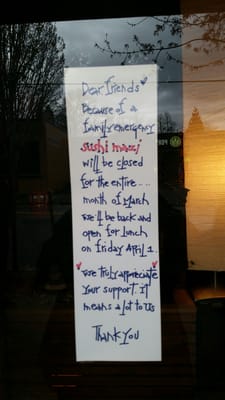 Dear friends
Because of a
family emergency
sushi mazi
will be closed
for the entire....
month of March
we'll be back and
open for lunch
on friday April 1.
we truly appreciate
your support. It
means a lot to us
Thank you